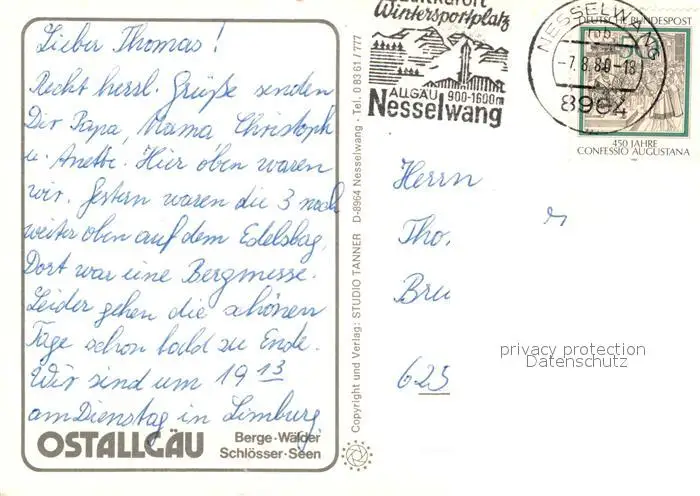 Lieber Thomas!
Recht herzl. Grüße senden
Dir Papa, Mama Christoph
u. Anette. Hier oben waren
wir. Gestern waren die 3 noch
weiter oben auf dem Edelsbg.
Dort war eine Bergmesse.
Leider gehen die schönen
Tage schon bald zu Ende.
Wir sind um 19 13
am Dienstag in Limburg
OSTALLGÄU
Berge·Wälder
Schlösser·Seen
Copyright und Verlag: STUDIO TANNER D-8964 Nesselwang · Tel. 0 83 61 / 777
Wintersportplatz
ALLGÄU 900-1600m
Nesselwang
NESSELWANG
-7.8.80-18
8964
DEUTSCHE BUNDESPOST
450 JAHRE
CONFESSIO AUGUSTANA
Herrn
Tho.
Bre
625
privacy protection
Datenschutz